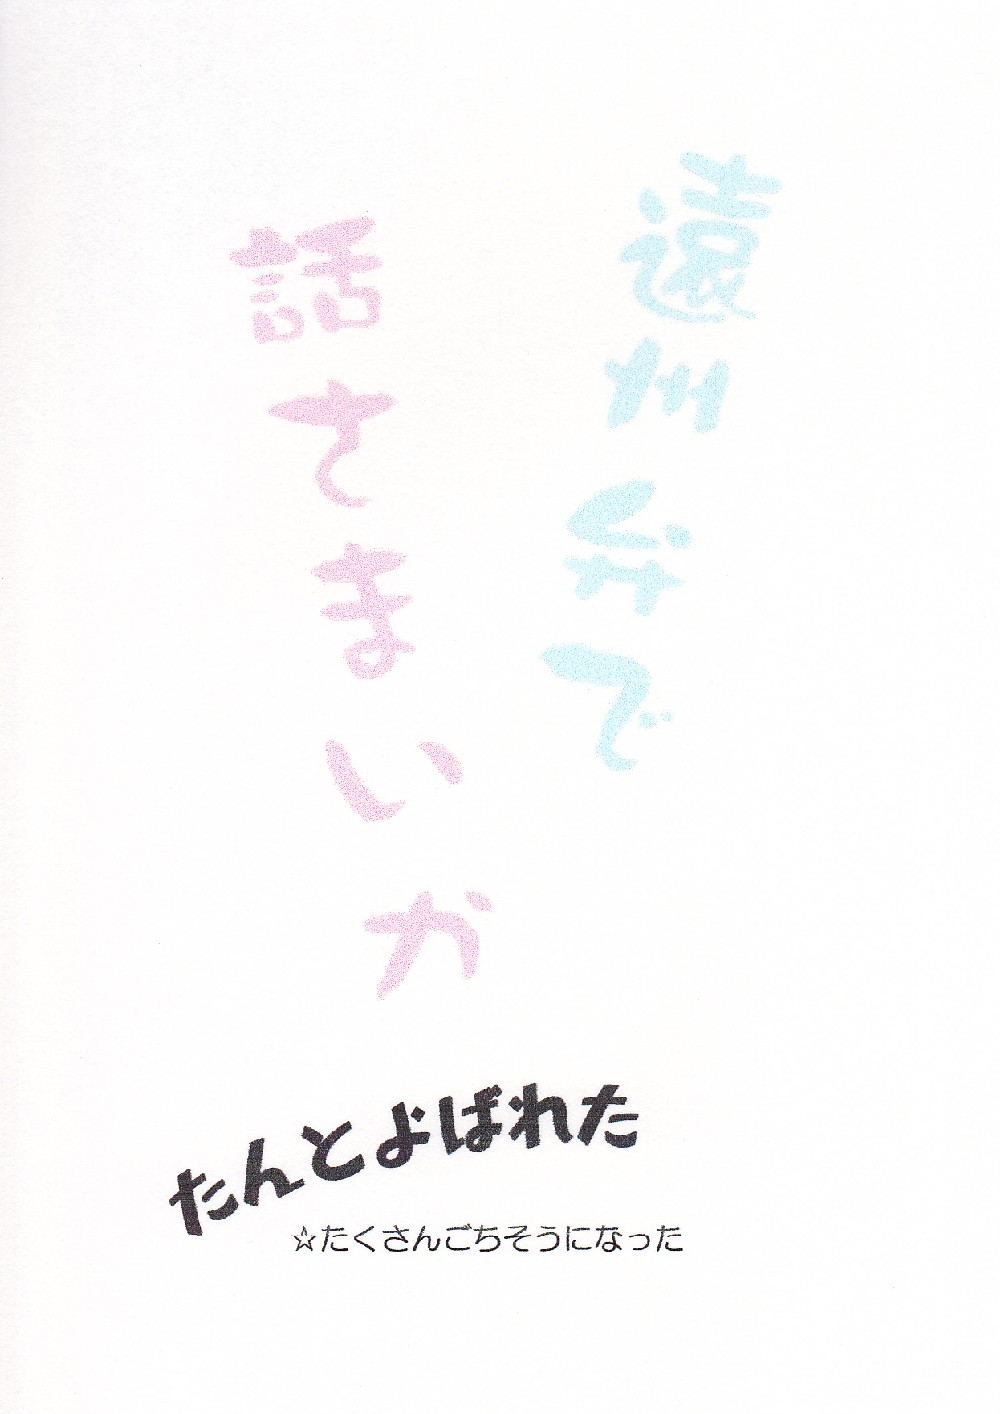 遠州弁で
話てまいか
たんとよばれた
☆たくさんごちそうになった